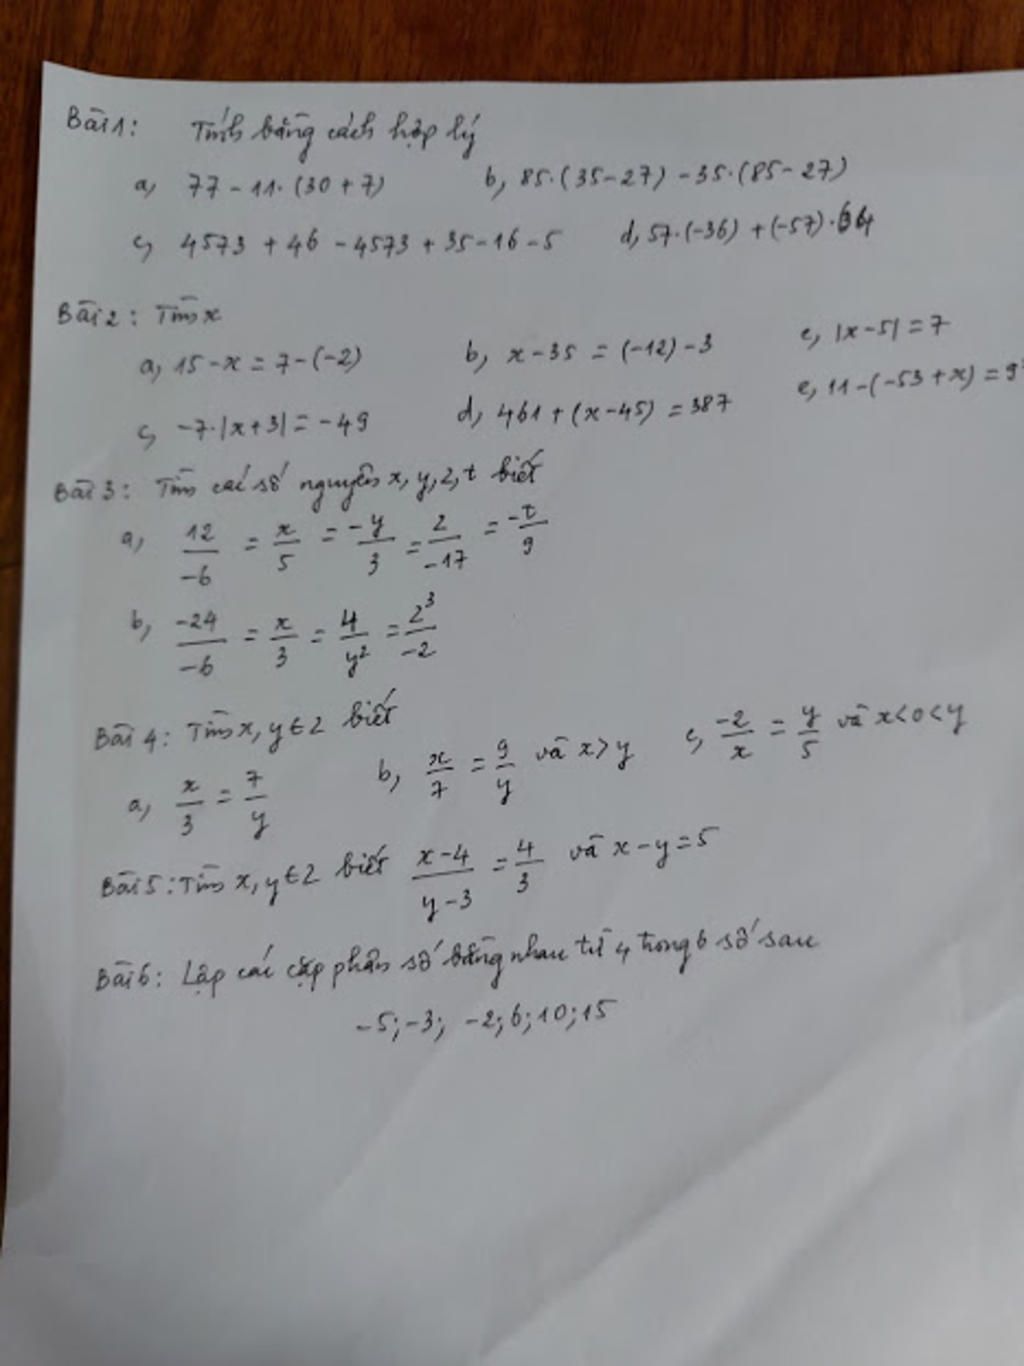 Bài 1: Tính bằng cách hợp lý
a, 77 - 11. (30 + 7) b, 85.(35-27) - 35.(85-27)
c, 4573 + 46 - 4573 + 35 - 16 - 5 d, 57.(-36) + (-57).64
Bài 2: Tìm x
a, 15 - x = 7 - (-2) b, x - 35 = (-12) - 3 e, |x - 5| = 7
c, -7.|x+3| = -49 d, 461 + (x - 45) = 387 e, 11 - (-53 + x) =
Bài 3: Tìm các số nguyên x, y, z, t biết
a, 12/-6 = x/5 = -y/3 = z/-17 = -t/9
b, -24/-6 = x/3 = 4/y² = z³/-2
Bài 4: Tìm x, y ∈ Z biết
a, x/3 = 7/y b, x/7 = 9/y và x > y c, -2/x = y/5 và x < 0 < y
Bài 5: Tìm x, y ∈ Z biết x-4/y-3 = 4/3 và x - y = 5
Bài 6: Lập các cặp phân số bằng nhau từ 4 trong 6 số sau
-5; -3; -2; 6; 10; 15